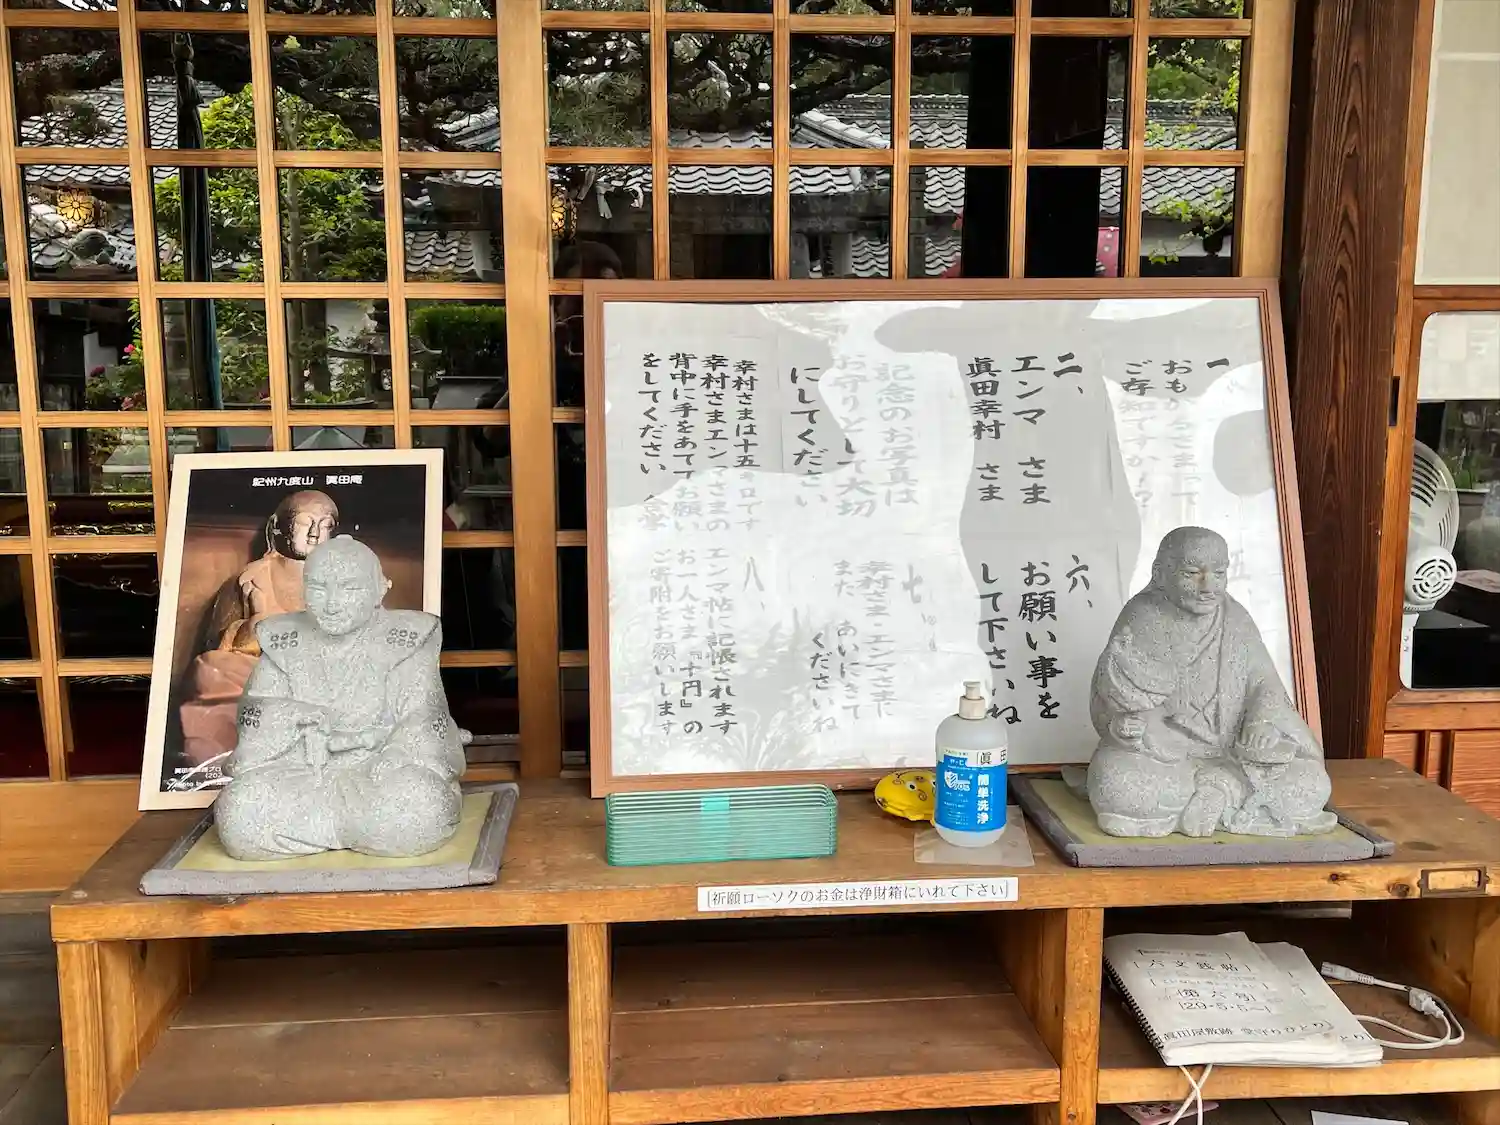 紀州九度山 眞田庵
一、
おもかるまって
ご存知ですか!?
二、
エンマ さま
眞田幸村 さま
記念のお写真は
お守りとして大切
にしてください
幸村さまは十五キロです
幸村さまエンマさまの
背中に手をあててお願い
をしてください
六、
お願い事を
して下さいね
七、
幸村さま・エンマさまに
また あいにきて
くださいね
八、
エンマ帖に記帳されます
お一人さま『十円』の
ご寄附をお願いします
眞田
簡単洗浄
[祈願ローソクのお金は浄財箱にいれて下さい]
六文銭帖
第六号
29.5.5~
眞田屋敷跡 堂守りひとり